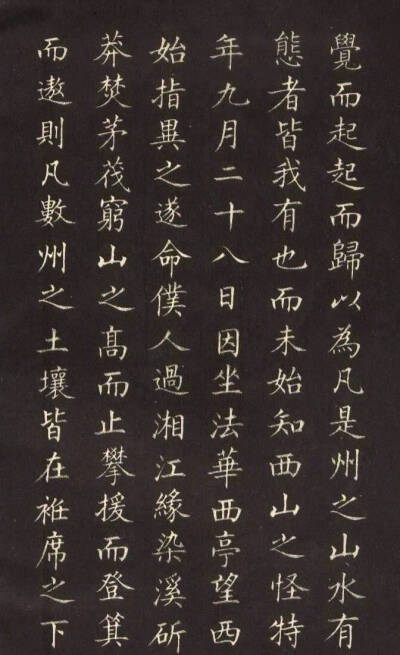 覺而起起而歸以為凡是州之山水有
態者皆我有也而未始知西山之怪特
年九月二十八日因坐法華西亭望西
始指異之遂命僕人過湘江緣染溪斫
莽焚茅茷窮山之高而止攀援而登箕
而遨則凡數州之土壤皆在袵席之下